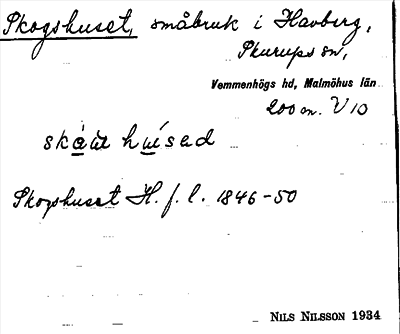 Skogshuset, småbruk i Havberg,
Skurups sn,
Vemmenhögs hd, Malmöhus län
200 m. V 10
húsad
Skogshuset H. f. l. 1846-50
NILS NILSSON 1934